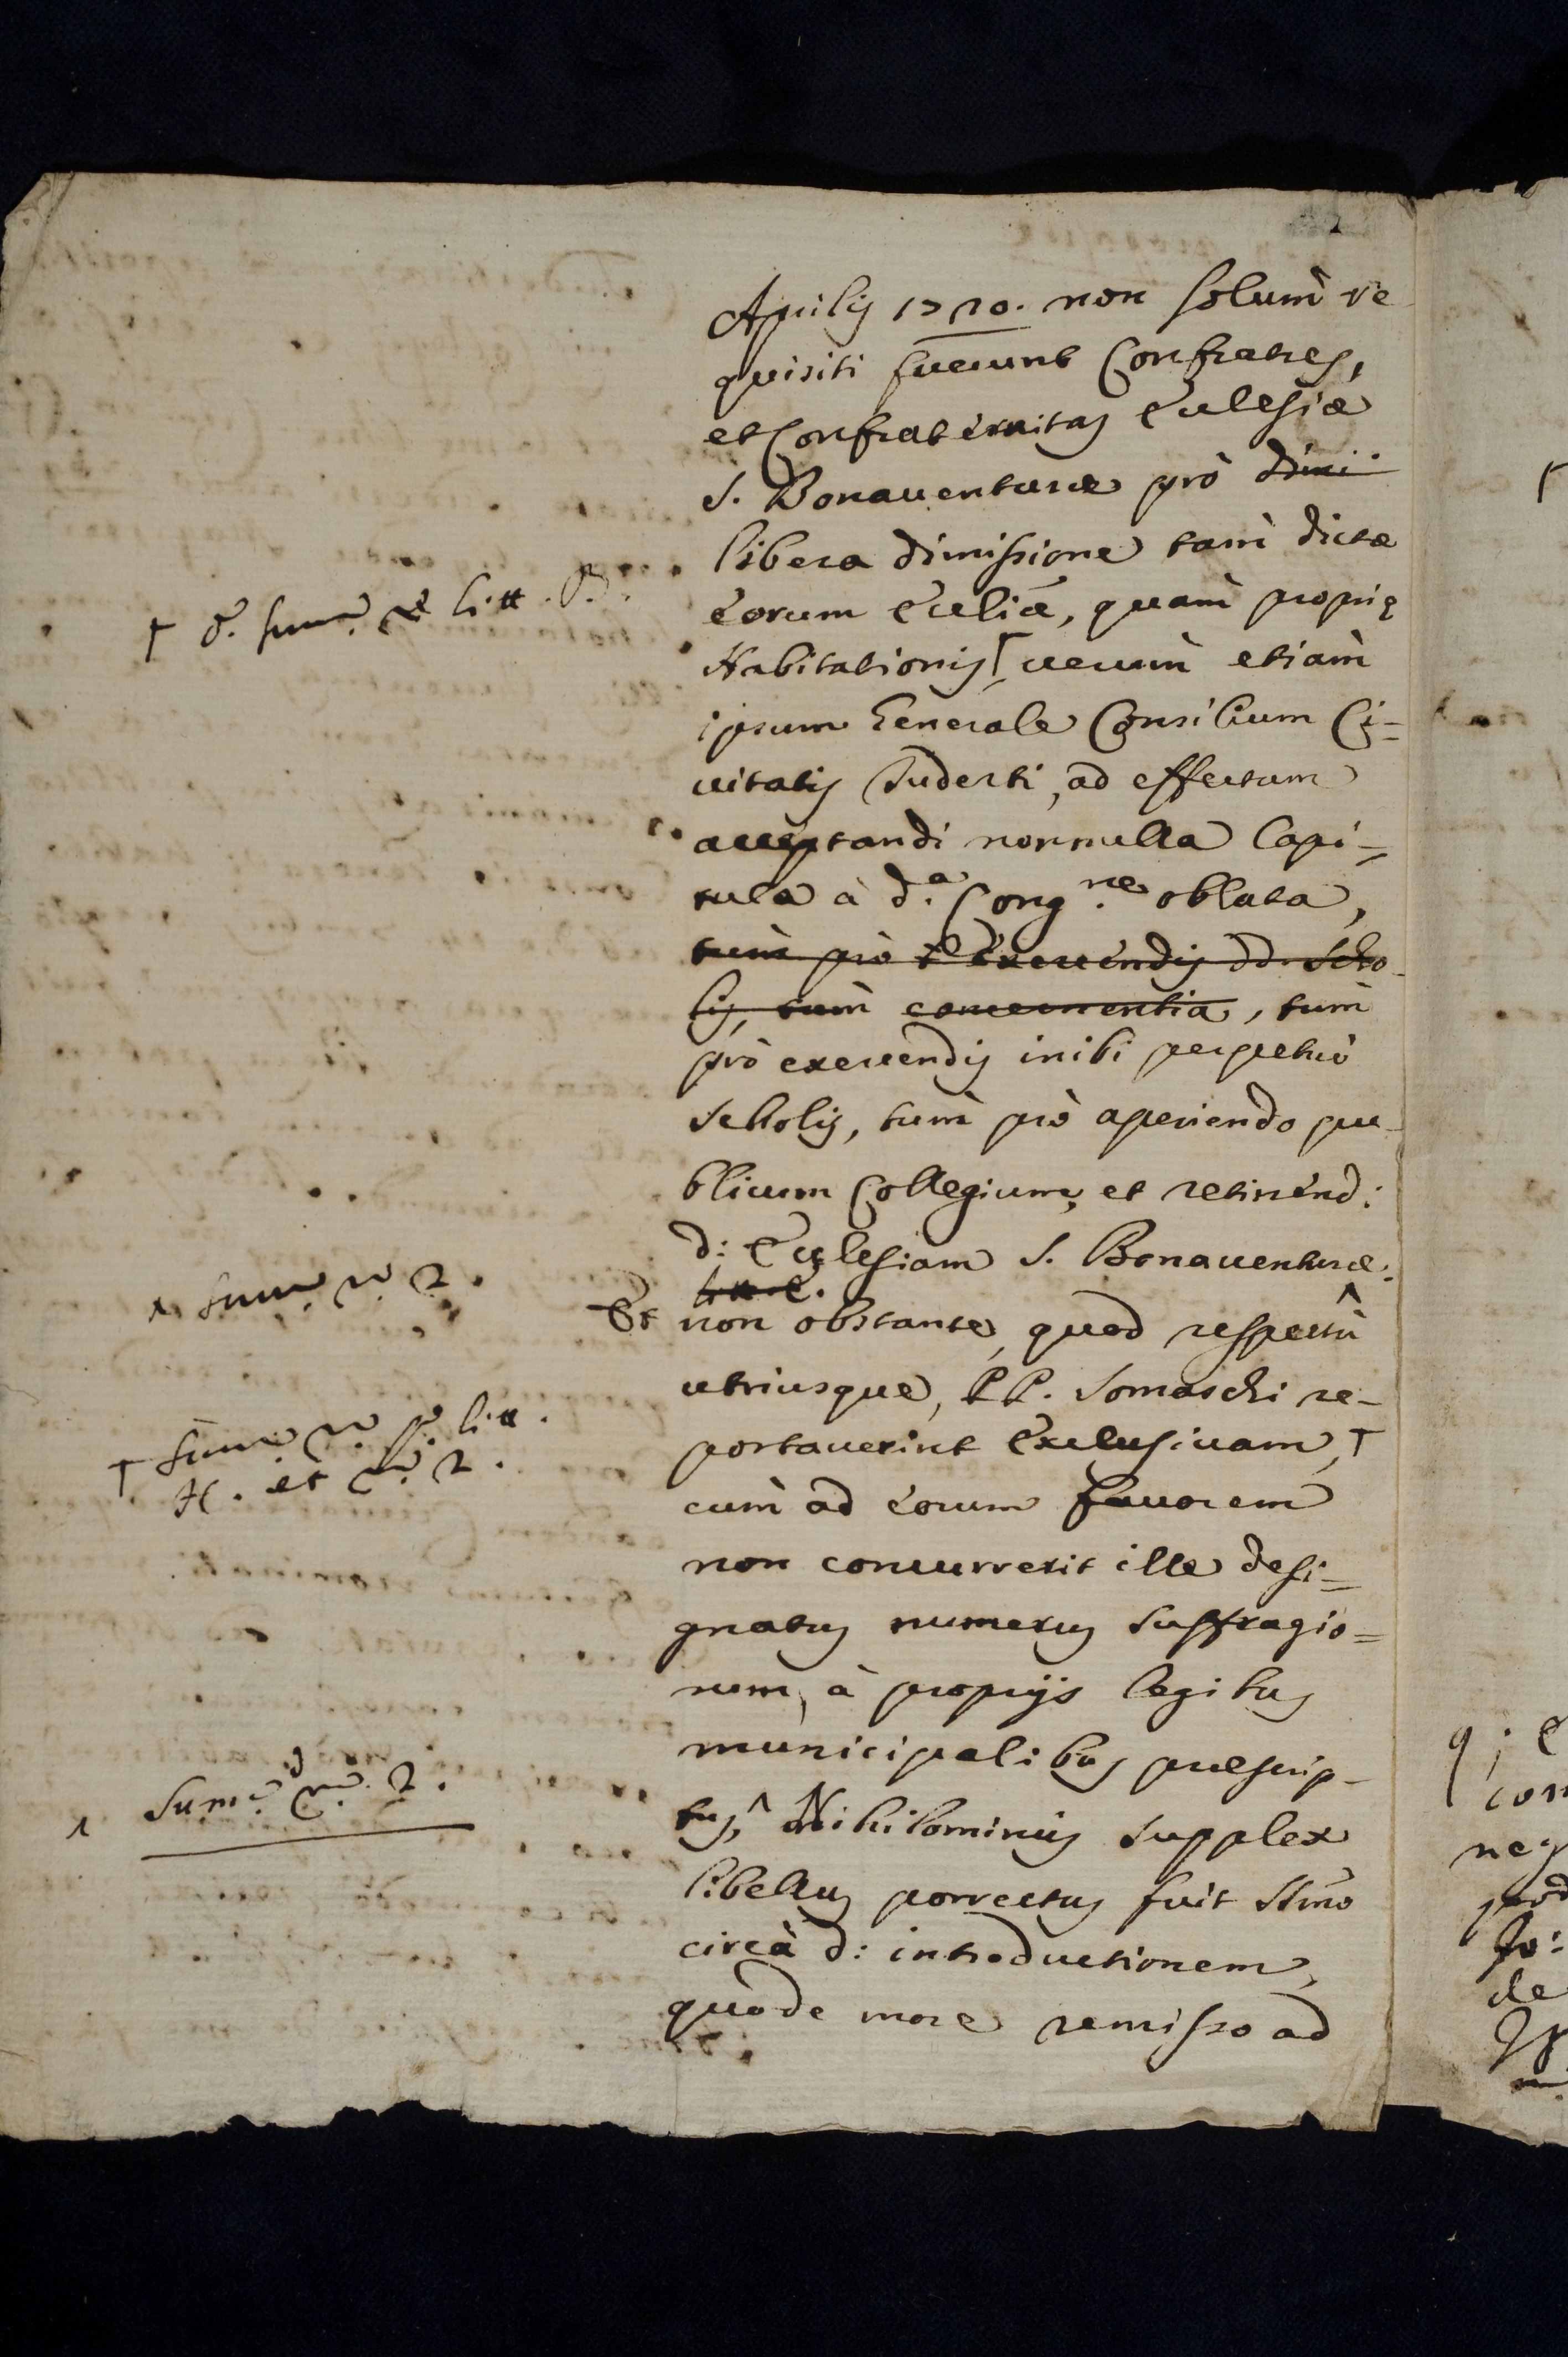 Aprilis 1720. non solum̀ re
quisiti fuerunt Confratres,
et Confraternitas Ecclesiæ
S. Bonauenturæ prò dimi
libera dimissione tam̀ dictæ
eorum Eccliæ, quam̀ proprię
Habitationis, † uerum̀ etiam̀
ipsum Generale Consilium Ci=
uitatis Tuderti, ad effectum
acceptandi nonnulla Capi=
tula à d.ª Cong.ne oblata,
tum̀ prò exercendis dd. Scho-
lis, tum̀ concernentia, tum̀
prò exercendis inibi perpetuò
Scholis, tum̀ prò aperiendo pu-
blicum Collegium, et retinend:
d: Ecclesiam S. Bonauenturæ.
Et non obstante, quod respectù ^
utriusque, PP. Somaschi re-
portauerint Exclusiuam, †
cum̀ ad eorum fauorem
non concurrerit ille desi=
gnatus numerus suffragio=
rum, à proprijs legibus
municipalibus præscrip-
tus, ^ Nihilominus supplex
libellus porrectus fuit SSmo
circà d: introductionem,
quo de more remisso ad
† litt. B.
^ Sum. n. 2.
† Sum. n. p. litt.
H. et n. 2.
^ Sum. d. n. 2.